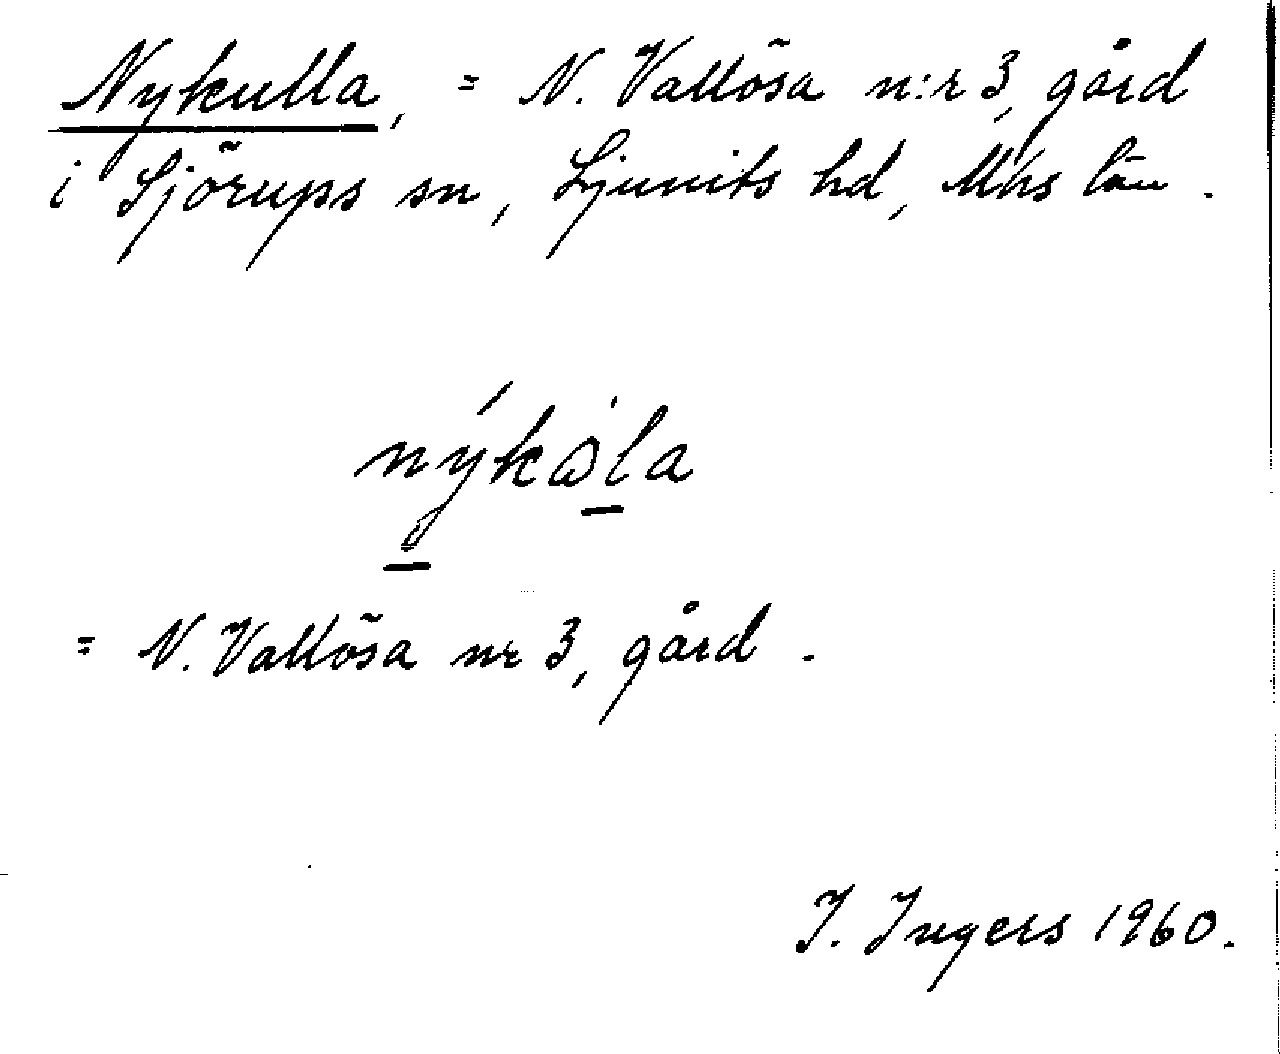 Nykulla, = N. Vallösa n:r 3, gård
i Sjörups sn, Ljunits hd, Mhs län.
nýkòla
= N. Vallösa nr 3, gård.
I. Ingers 1960.